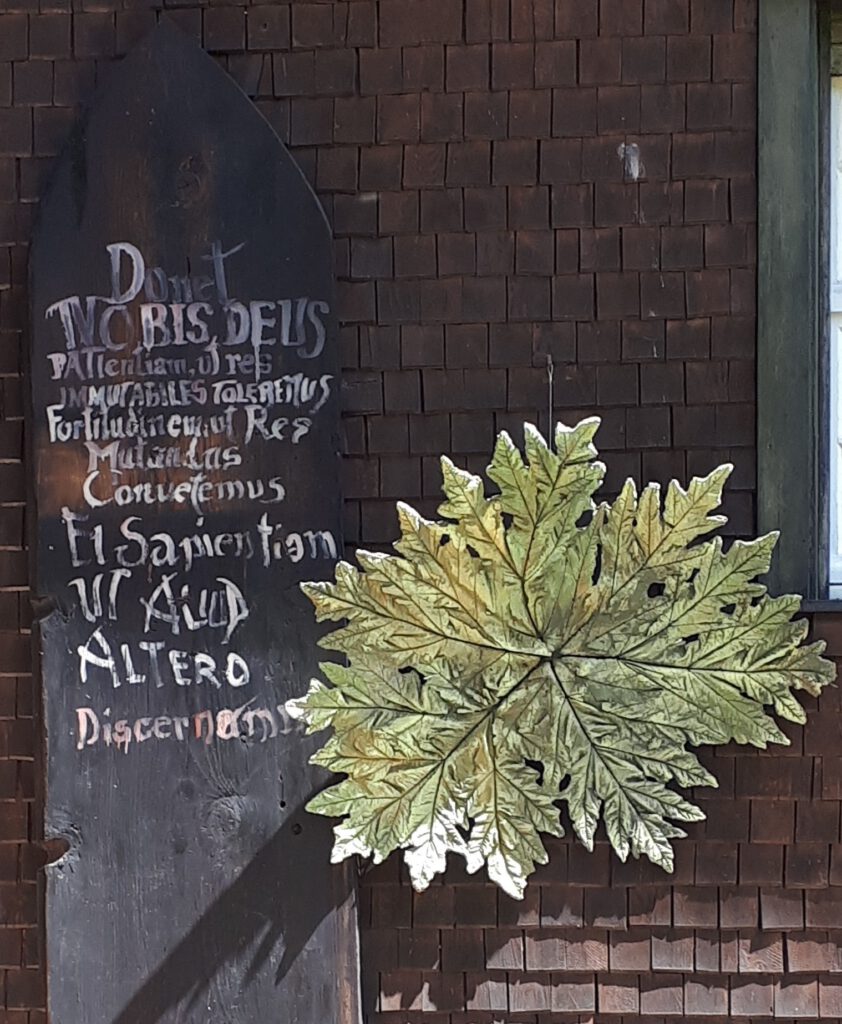 Donet
NOBIS, DEUS
PATIentiam, ut res
IMMUTABILES TOLEREMUS
Fortitudinem, ut Res
Mutandas
Convetemus
Et Sapientiam
UT ALIUD
ALTERO
Discernamus